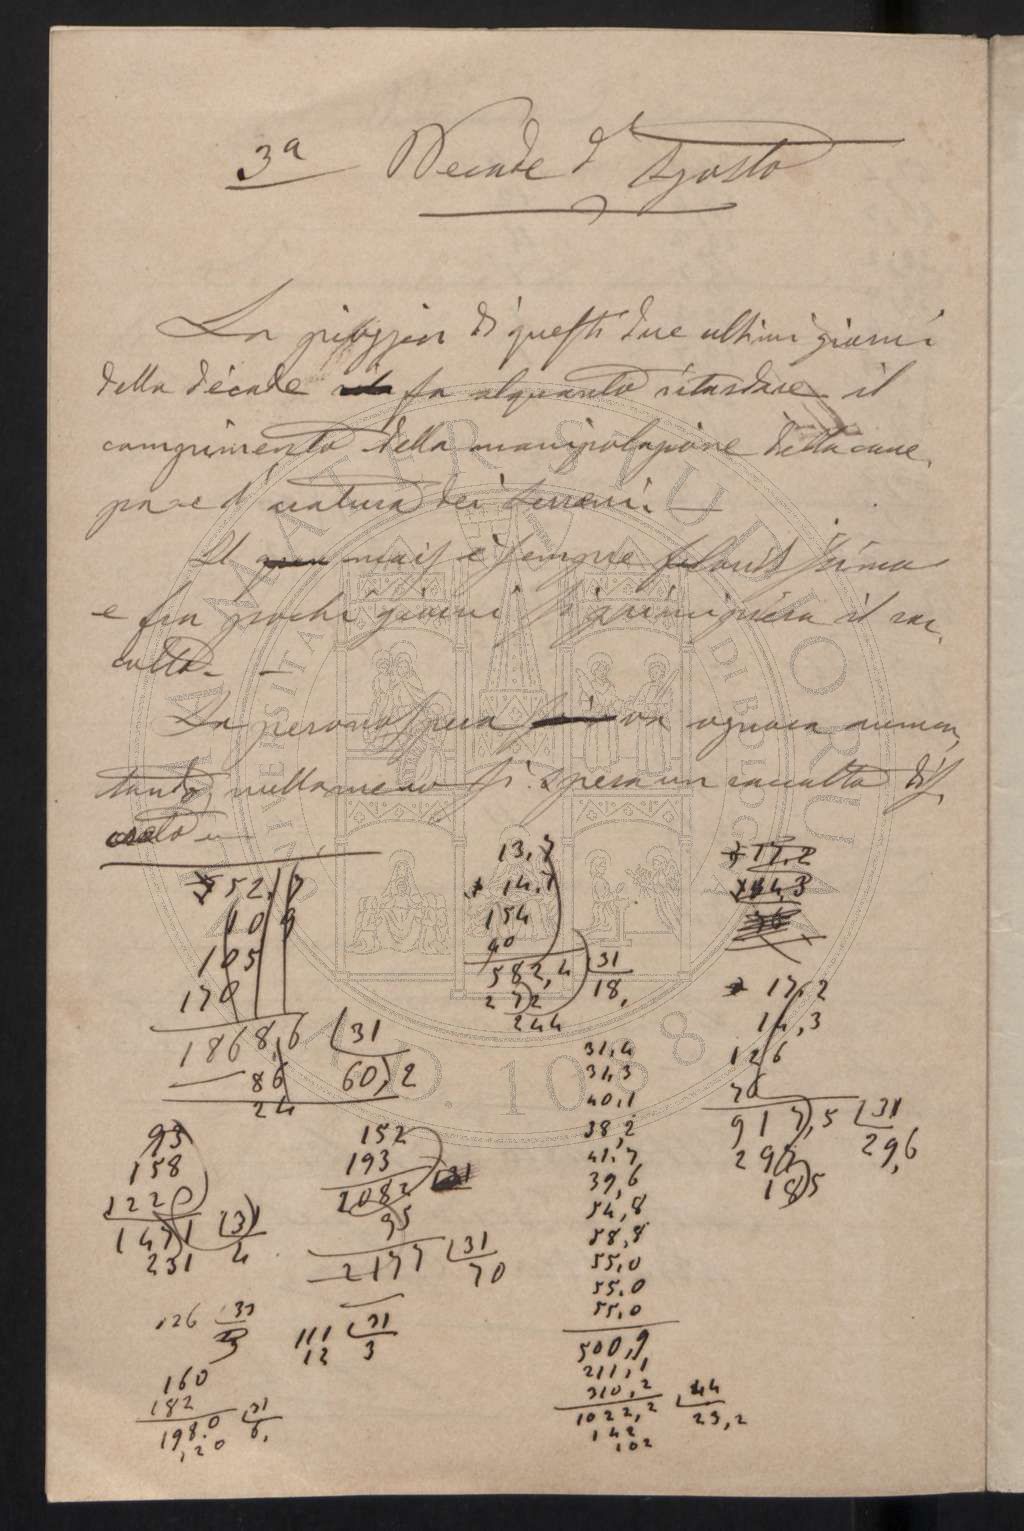 3ª Decade d'Agosto
La pioggia di questi due ultimi giorni
della decade fa alquanto ritardare il
compimento della manipolazione della cana
pa e d'aratura dei terreni. —
Il mais è sempre floridissimo
e fra pochi giorni si principierà il rac
colto. —
La peronospera va ognora aumen
tando, nullameno si spera un raccolto dis
creto —
752,7
109
105
170
1868,6 31
86 60,2
24
13,7
14,7
154
90
582,4 31
272 18,
244
17,2
14,3
17,2
14,3
126
70
917,5 31
297 29,6
185
93
158
1220
1471 31
231 4
152
193
2082 31
95
2177 31
70
126 31
111 31
12 3
160
182
198.0 31
120 6,
31,4
31,3
40,1
38,2
41,7
39,6
54,8
58,8
55,0
55,0
55,0
500,9
211,1
310,2
1022,2 44
142 23,2
102
ALMA MATER STUDIORUM
UNIVERSITÀ DI BOLOGNA
A.D. 1088